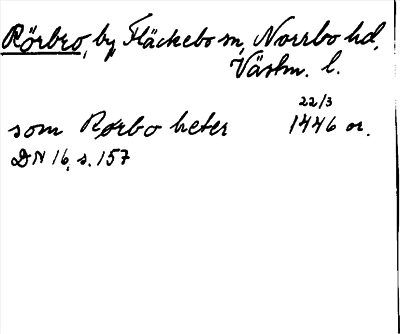 Rörbro, by, Fläckebo sn, Norrbo hd,
Västm. l.
22/3
som Rørbo heter 1446 or.
DN 16, s. 157